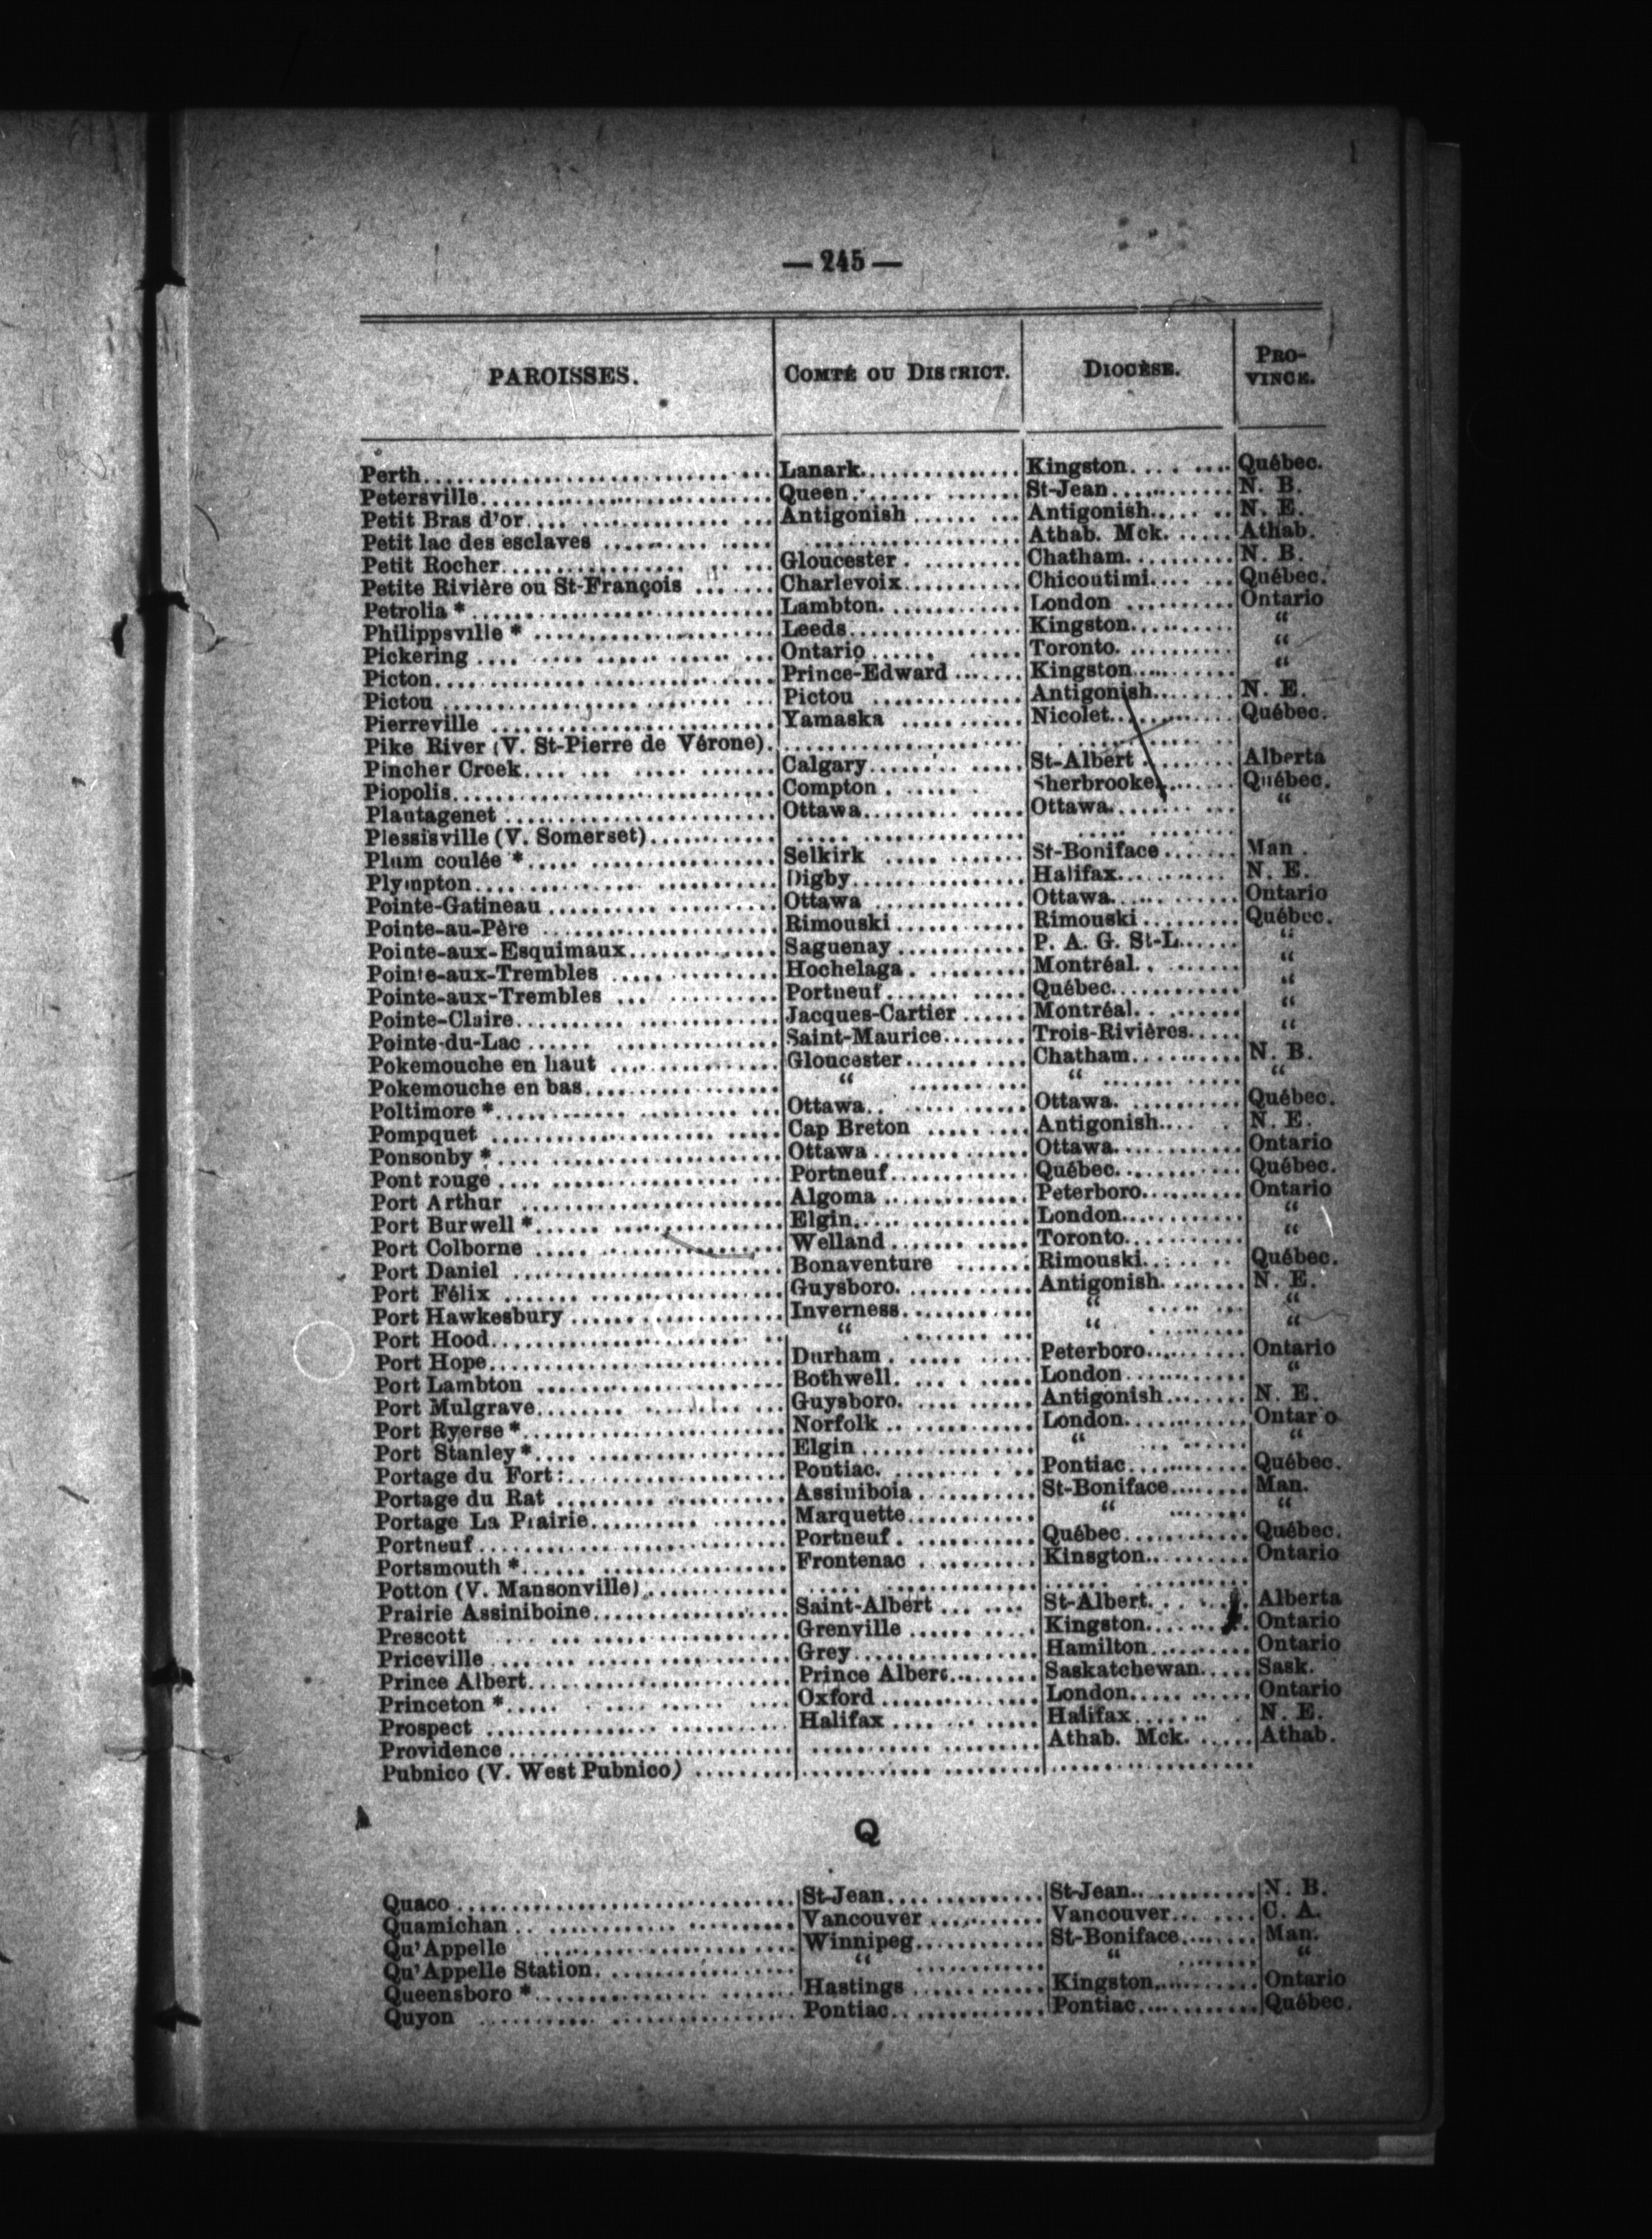 — 245 —
PAROISSES. COMTÉ OU DISTRICT. DIOCÈSE. PROVINCE.
Perth Lanark Kingston Québec.
Petersville Queen St-Jean N. B.
Petit Bras d'or Antigonish Antigonish N. E.
Petit lac des esclaves Athab. Mck. Athab.
Petit Rocher Gloucester Chatham N. B.
Petite Rivière ou St-François Charlevoix Chicoutimi Québec.
Petrolia * Lambton London Ontario
Philippsville * Leeds Kingston “
Pickering Ontario Toronto “
Picton Prince-Edward Kingston “
Pictou Pictou Antigonish N. E.
Pierreville Yamaska Nicolet Québec.
Pike River (V. St-Pierre de Vérone)
Pincher Creek Calgary St-Albert Alberta
Piopolis Compton Sherbrooke Québec.
Plantagenet Ottawa Ottawa “
Plessisville (V. Somerset)
Plum coulée * Selkirk St-Boniface Man.
Plympton Digby Halifax N. E.
Pointe-Gatineau Ottawa Ottawa Ontario
Pointe-au-Père Rimouski Rimouski Québec.
Pointe-aux-Esquimaux Saguenay P. A. G. St-L. “
Pointe-aux-Trembles Hochelaga Montréal “
Pointe-aux-Trembles Portneuf Québec “
Pointe-Claire Jacques-Cartier Montréal “
Pointe-du-Lac Saint-Maurice Trois-Rivières “
Pokemouche en haut Gloucester Chatham N. B.
Pokemouche en bas “ “ “
Poltimore * Ottawa Ottawa Québec.
Pompquet Cap Breton Antigonish N. E.
Ponsonby * Ottawa Ottawa Ontario
Pont rouge Portneuf Québec Québec.
Port Arthur Algoma Peterboro Ontario
Port Burwell * Elgin London “
Port Colborne Welland Toronto “
Port Daniel Bonaventure Rimouski Québec.
Port Félix Guysboro Antigonish N. E.
Port Hawkesbury Inverness “ “
Port Hood “ “ “
Port Hope Durham Peterboro Ontario
Port Lambton Bothwell London “
Port Mulgrave Guysboro Antigonish N. E.
Port Ryerse * Norfolk London Ontar o
Port Stanley * Elgin “ “
Portage du Fort: Pontiac Pontiac Québec.
Portage du Rat Assiniboia St-Boniface Man.
Portage La Prairie Marquette “ “
Portneuf Portneuf Québec Québec.
Portsmouth * Frontenac Kinsgton Ontario
Potton (V. Mansonville)
Prairie Assiniboine Saint-Albert St-Albert Alberta
Prescott Grenville Kingston Ontario
Priceville Grey Hamilton Ontario
Prince Albert Prince Albert Saskatchewan Sask.
Princeton * Oxford London Ontario
Prospect Halifax Halifax N. E.
Providence Athab. Mck. Athab.
Pubnico (V. West Pubnico)
Q
Quaco St-Jean St-Jean N. B.
Quamichan Vancouver Vancouver C. A.
Qu'Appelle Winnipeg St-Boniface Man.
Qu'Appelle Station “ “ “
Queensboro * Hastings Kingston Ontario
Quyon Pontiac Pontiac Québec.